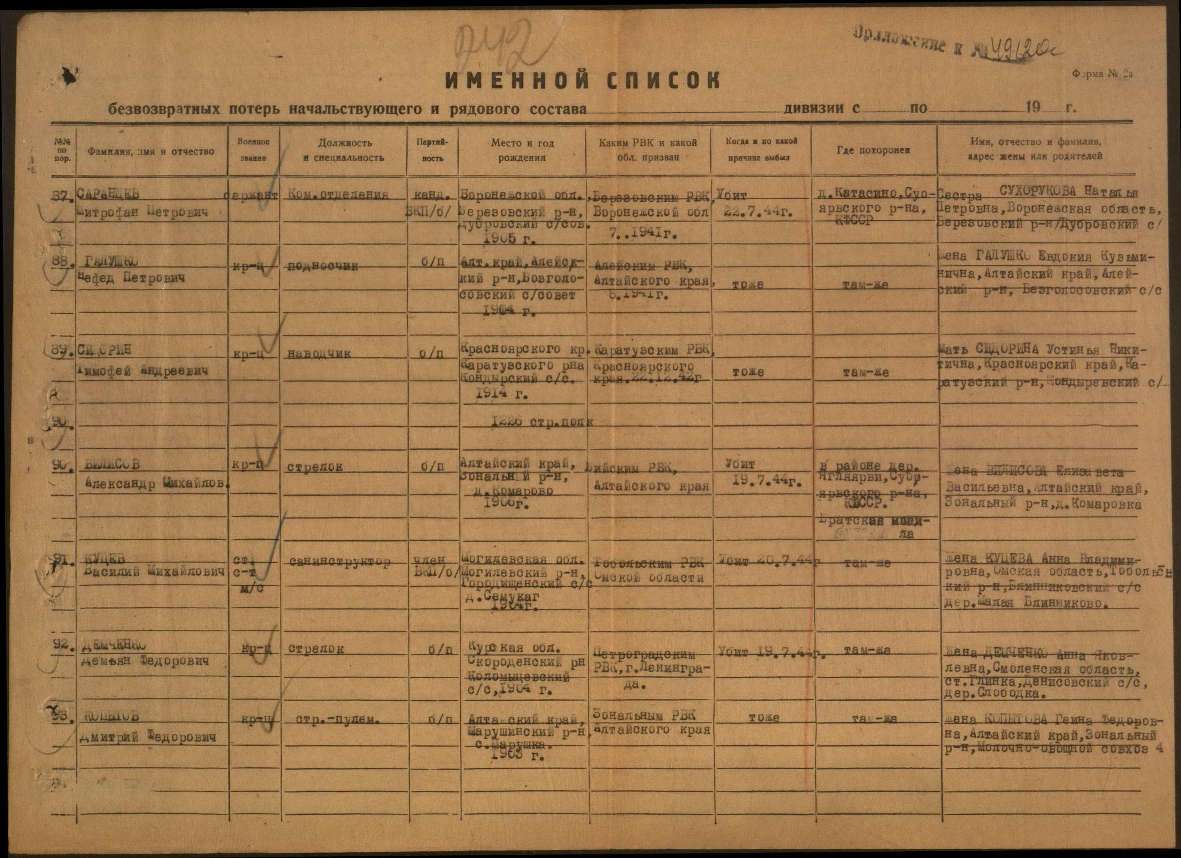 242
Приложение к № 49120с
ИМЕННОЙ СПИСОК
Форма № 2а
безвозвратных потерь начальствующего и рядового состава дивизии с по 19 г.
№№ по пор.
Фамилия, имя и отчество
Военное звание
Должность и специальность
Партийность
Место и год рождения
Каким РВК и какой обл. призван
Когда и по какой причине выбыл
Где похоронен
Имя, отчество и фамилия, адрес жены или родителей
87.
САРАНЦЕВ
Митрофан Петрович
сержант
Ком.отделения
канд.
ВКП/б/
Воронежской обл.,
Березовский р-н,
Дубровский с/сов.
1905 г.
Березовским РВК,
Воронежской обл
7..1941г.
Убит
22.7.44г.
д.Катасино,Суо-
ярвского р-на,
КФССР
Сестра СУХОРУКОВА Наталья
Петровна,Воронежская область,
Березовский р-н/Дубровский с/
88.
ГАЛУШКО
Нефед Петрович
кр-ц
подносчик
б/п
Алт.край,Алейск-
кий р-н,Безголо-
совский с/совет
1904 г.
Алейским РВК,
Алтайского края,
6.1941г.
тоже
там-же
жена ГАЛУШКО Евдокия Кузьми-
нична,Алтайский край,Алей-
ский р-н, Безголосовский с/с
89.
СИДОРИН
Тимофей Андреевич
кр-ц
наводчик
б/п
Красноярского кр.
Каратувского рна
Кондырский с/с.
1914 г.
Каратувским РВК,
Красноярского
края.22.12.42г
тоже
там-же
мать СИДОРИНА Устинья Ники-
тична,Красноярский край,Ка-
ратувский р-н,Кондыревский с/
90.
1226 стр.полк
90.
ВИЛИСОВ
Александр Михайлов.
кр-ц
стрелок
б/п
Алтайский край,
Зональный р-н,
д.Комарово
1906г.
Бийским РВК,
Алтайского края
Убит
19.7.44г.
в районе дер.
Ягляярви,Суоя-
рвского р-на,
КФССР.
Братская моги-
ла
жена ВИЛИСОВА Елизавета
Васильевна,Алтайский край,
Зональный р-н,д.Комаровка
91.
КУЦЕВ
Василий Михайлович
ст.
с-т
м/с
санинструктор
член
ВКП/б/
Могилевская обл.
Могилевский р-н,
Городищенский с/с
д.Семукаг
1904г.
Тобольским РВК
Омской области
Убит 20.7.44г
там-же
жена КУЦЕВА Анна Владими-
ровна,Омская область,Тоболь-
кий р-н,Блинниковский с/с
дер.Малая Блинниково.
92.
ДЕМЧЕНКО
Демьян Федорович
кр-ц
стрелок
б/п
Курская обл.
Скороденский рн
Коломыцевский
с/с,1904 г.
Петроградским
РВК,г.Ленингра-
да.
Убит 19.7.44г.
там-же
жена ДЕМЧЕНКО Анна Яков-
левна,Смоленская область,
ст.Глинка,Денисовский с/с,
дер.Слободка.
93.
КОПЫТОВ
Дмитрий Федорович
кр-ц
стр.-пулем.
б/п
Алтайский край,
Марушинский р-н,
с.Марушка.
1903 г.
Зональным РВК
Алтайского края
тоже
там-же
жена КОПЫТОВА Ганна Федоров-
на,Алтайский край,Зональный
р-н,Молочно-овощной совхоз 4